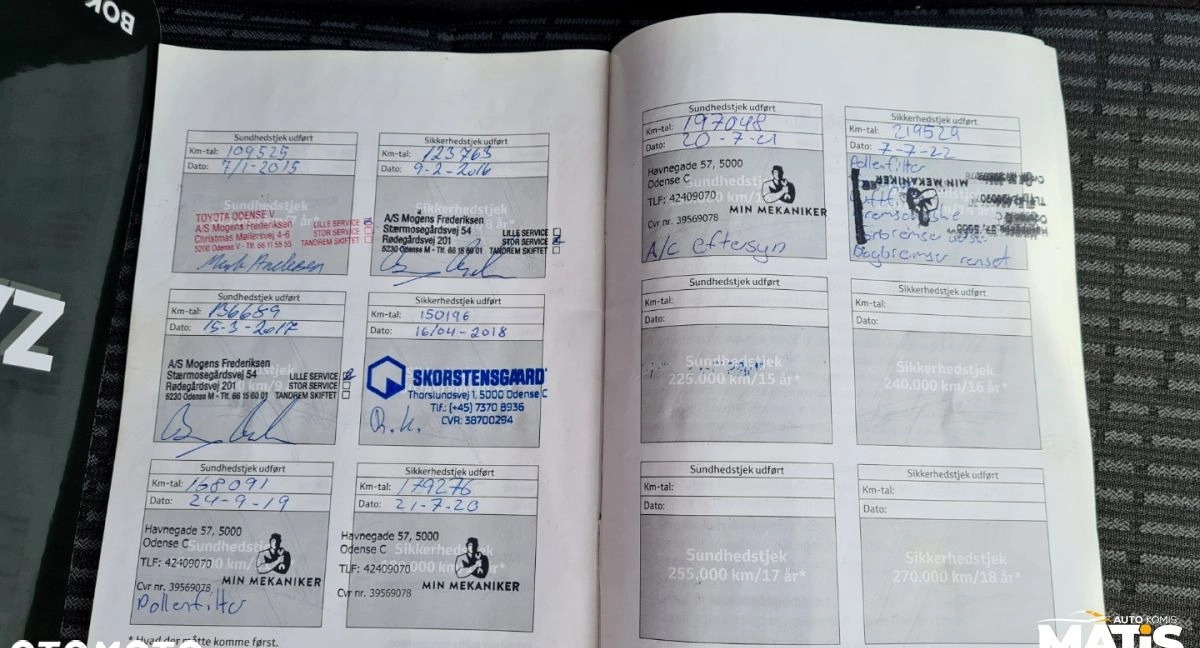 BOK
Sundhedstjek udført
Km-tal: 109525
Dato: 7/1-2015
TOYOTA ODENSE V
A/S Mogens Frederiksen
Christmas Møllersvej 4-6
5200 Odense V - Tlf. 66 11 55 55
LILLE SERVICE
STOR SERVICE
TANDREM SKIFTET
Sikkerhedstjek udført
Km-tal: 123763
Dato: 9-2-2016
A/S Mogens Frederiksen
Stærmosegårdsvej 54
Rødegårdsvej 201
5230 Odense M - Tlf. 66 15 60 01
LILLE SERVICE
STOR SERVICE
TANDREM SKIFTET
Sundhedstjek udført
Km-tal: 136689
Dato: 15-3-2017
A/S Mogens Frederiksen
Stærmosegårdsvej 54
Rødegårdsvej 201
5230 Odense M - Tlf. 66 15 60 01
LILLE SERVICE
STOR SERVICE
TANDREM SKIFTET
Sikkerhedstjek udført
Km-tal: 150196
Dato: 16/04-2018
SKORSTENSGAARD
Thorslundsvej 1, 5000 Odense C
Tlf.: (+45) 7370 8936
CVR: 38700294
R.K.
Sundhedstjek udført
Km-tal: 168091
Dato: 24-9-19
Havnegade 57, 5000
Odense C
TLF: 42409070
MIN MEKANIKER
Cvr nr. 39569078
Pollenfilter
Sikkerhedstjek udført
Km-tal: 179276
Dato: 21-7-20
Havnegade 57, 5000
Odense C
TLF: 42409070
MIN MEKANIKER
Cvr nr. 39569078
* Hvad der måtte komme først.
Sundhedstjek udført
Km-tal: 197048
Dato: 20-7-21
Havnegade 57, 5000
Odense C
TLF: 42409070
MIN MEKANIKER
Cvr nr. 39569078
A/C eftersyn
Sikkerhedstjek udført
Km-tal: 219529
Dato: 7-7-22
Pollenfilter
MIN MEKANIKER
Bagbremser renset
Sundhedstjek udført
Km-tal:
Dato:
Sundhedstjek
225.000 km/15 år*
Sikkerhedstjek udført
Km-tal:
Dato:
Sikkerhedstjek
240.000 km/16 år*
Sundhedstjek udført
Km-tal:
Dato:
Sundhedstjek
255.000 km/17 år*
Sikkerhedstjek udført
Km-tal:
Dato:
Sikkerhedstjek
270.000 km/18 år*
OTOMOTO
AUTO KOMIS
MATIS